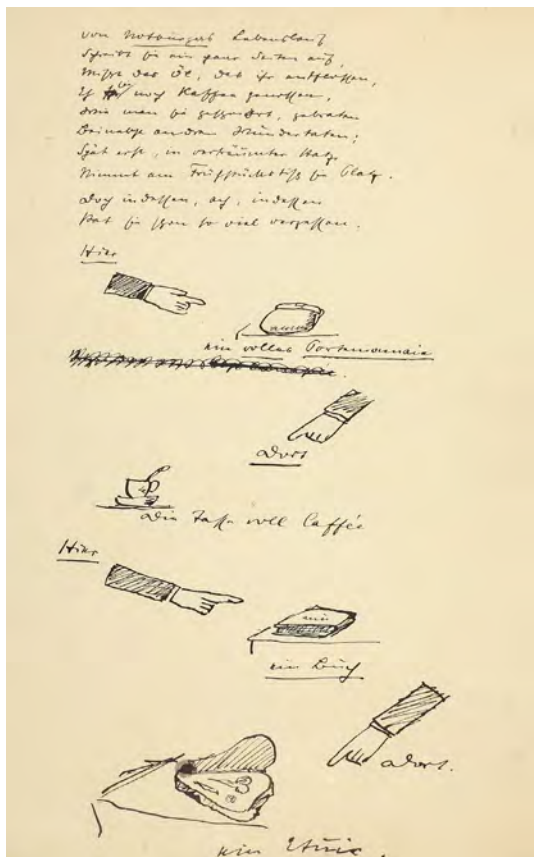 von Lebenslauf
Schreibt sie ein paar Seiten auf,
Misst das Öl, das ihr entflossen,
noch Kaffee genossen,
Wie man sie gebraten
Beinahe Wundertaten;
Spät erst, in verträumter Hatz,
Nimmt am Frühstückstisch sie Platz.
Doch indessen, ach, indessen
Hat sie schon so viel vergessen.
Hier
ein volles Portemonnaie
Dort
Die Tasse voll Caffée
Hier
ein Buch
Dort.
ein Etuie,